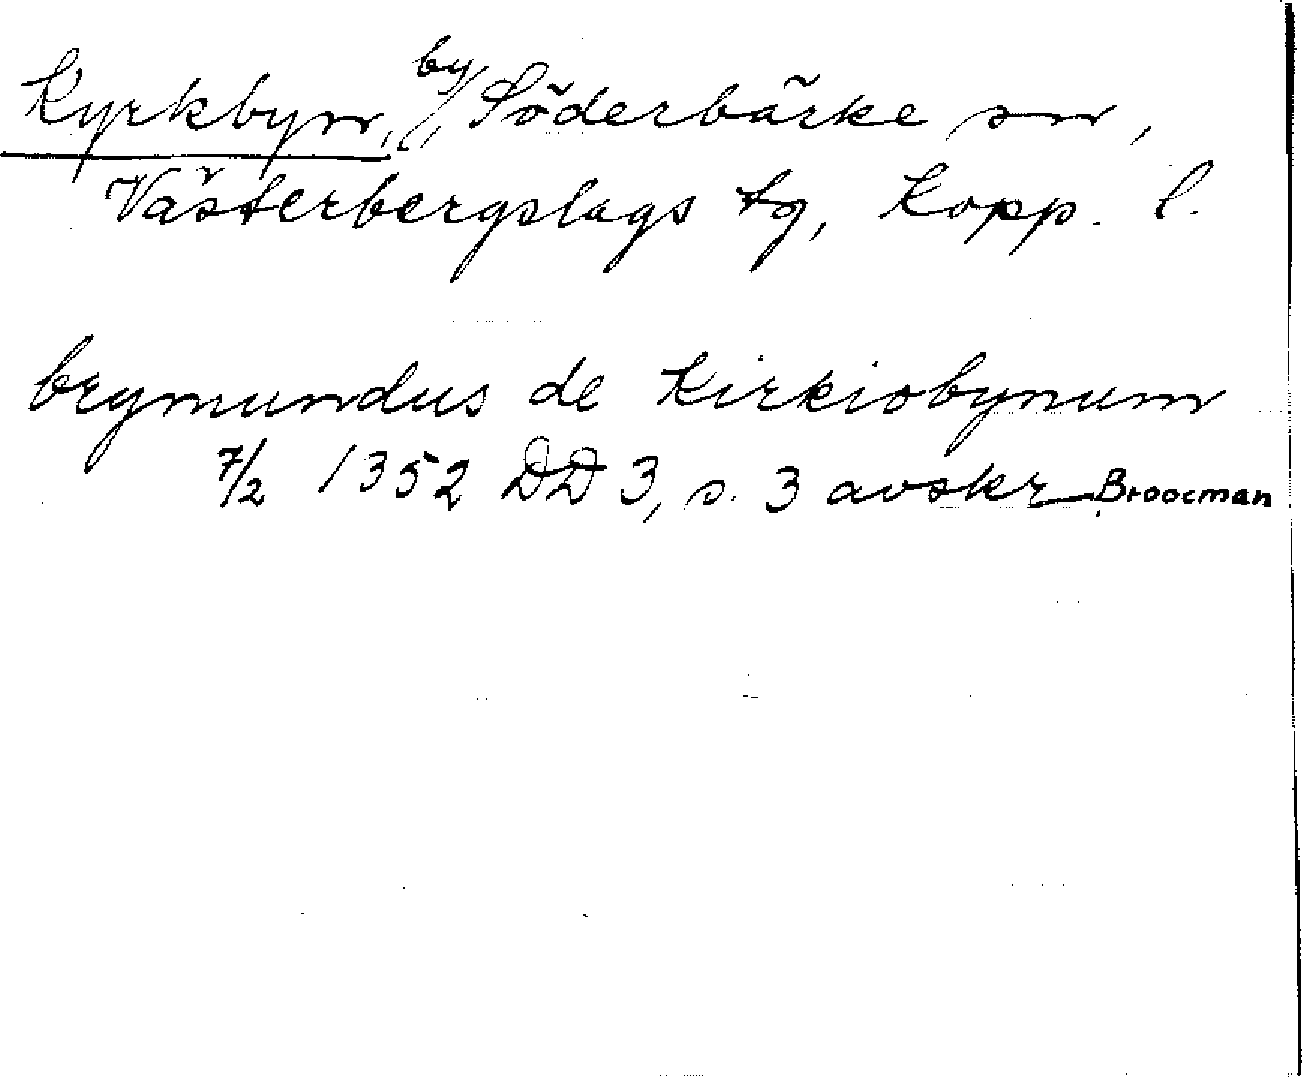 Kyrkbyn, by, Söderbärke sn,
Västerbergslags tg, Kopp. l.
brymundus de Kirkiobynum
7/2 1352 DD 3, s. 3 avskr Broocman